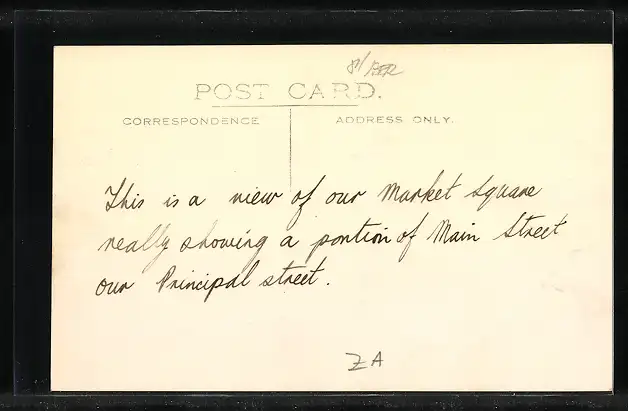 POST CARD.
CORRESPONDENCE
ADDRESS ONLY.
This is a view of our Market Square
really showing a portion of Main Street
our Principal street.
ZA